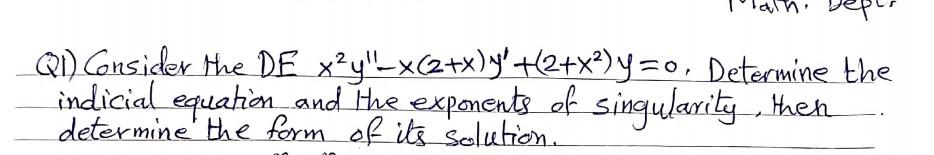 Math. Dept.
Q1) Consider the DE x²y''-x(2+x)y'+(2+x²)y=0. Determine the
indicial equation and the exponents of singularity, then
determine the form of its solution.